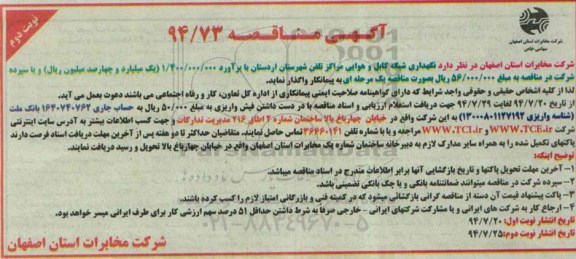 نوبت دوم
آگهی مناقصه ۹۴/۷۳
شرکت مخابرات استان اصفهان
سهامی خاص
شرکت مخابرات استان اصفهان در نظر دارد نگهداری شبکه کابل و هوایی مراکز تلفن شهرستان اردستان با برآورد ۱/۴۰۰/۰۰۰/۰۰۰ (یک میلیارد و چهارصد میلیون ریال) و با سپرده
شرکت در مناقصه به مبلغ ۵۶/۰۰۰/۰۰۰ ریال بصورت مناقصه یک مرحله ای به پیمانکار واگذار نماید.
لذا از کلیه اشخاص حقیقی و حقوقی واجد شرایط که دارای گواهینامه صلاحیت ایمنی پیمانکاری از اداره کل تعاون، کار و رفاه اجتماعی می باشند دعوت بعمل می آید.
از تاریخ ۹۴/۷/۲۰ لغایت ۹۴/۷/۲۹ جهت دریافت استعلام ارزیابی و اسناد مناقصه با در دست داشتن فیش واریزی به مبلغ ۵۰/۰۰۰ ریال به حساب جاری ۱۶۴۰۷۴۰۷۶۲ بانک ملت
(شناسه واریزی ۱۳۰۰۰۸۰۱۱۳۷۱۹۲) به این شرکت واقع در خیابان چهارباغ بالا ساختمان شماره ۲ اطاق ۲۱۶ مدیریت تدارکات و جهت کسب اطلاعات بیشتر به آدرس سایت اینترنتی
شرکت WWW.TCE.ir و WWW.TCI.ir مراجعه و یا با شماره تلفن ۳۶۶۶۰۱۴۱ تماس حاصل نمایند. متقاضیان حداکثر تا دو هفته پس از آخرین مهلت دریافت اسناد فرصت دارند
پاکتهای تکمیل شده را به همراه سایر مدارک لازم به دبیرخانه ساختمان شماره یک مخابرات استان اصفهان واقع در خیابان چهارباغ بالا تحویل و رسید دریافت نمایند.
توضیح اینکه:
۱- آخرین مهلت تحویل پاکتها و تاریخ بازگشایی آنها برابر اطلاعات مندرج در اسناد مناقصه میباشد.
۲- سپرده شرکت در مناقصه میتوانند ضمانتنامه بانکی و یا چک بانکی تضمینی باشد.
۳- پاکت پیشنهاد قیمت آن دسته از مناقصه گرانی بازگشایی میشود که در کمیته فنی و بازرگانی امتیاز لازم را کسب کرده باشند.
۴- ارجاع کار به شرکت های ایرانی و یا مشارکت شرکتهای ایرانی - خارجی صرفاً به شرط داشتن حداقل ۵۱ درصد سهم ارزشی کار برای طرف ایرانی میسر خواهد بود.
تاریخ انتشار نوبت اول: ۹۴/۷/۲۰
تاریخ انتشار نوبت دوم: ۹۴/۷/۲۵
شرکت مخابرات استان اصفهان
۰۲۱-۸۸۳۴۹۶۷۰-۵